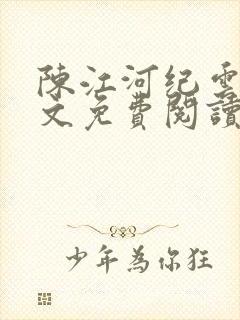 陳江河纪雲
文免費閱讀
少年為你狂